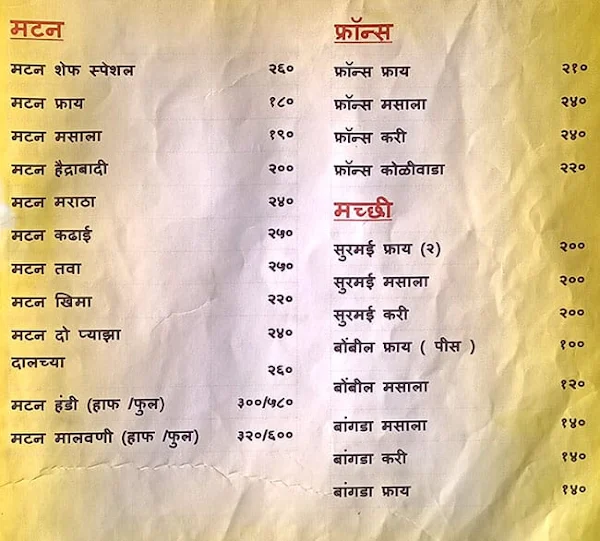 मटन
मटन शेफ स्पेशल २६०
मटन फ्राय १८०
मटन मसाला १९०
मटन हैद्राबादी २००
मटन मराठा २४०
मटन कढाई २५०
मटन तवा २५०
मटन खिमा २२०
मटन दो प्याझा २४०
दालच्या २६०
मटन हंडी (हाफ /फुल) ३००/५८०
मटन मालवणी (हाफ /फुल) ३२०/६००
फ्रॉन्स
फ्रॉन्स फ्राय २१०
फ्रॉन्स मसाला २४०
फ्रॉन्स करी २४०
फ्रॉन्स कोळीवाडा २२०
मच्छी
सुरमई फ्राय (२) २००
सुरमई मसाला २००
सुरमई करी २००
बोंबील फ्राय ( पीस ) १००
बोंबील मसाला १२०
बांगडा मसाला १४०
बांगडा करी १४०
बांगडा फ्राय १४०